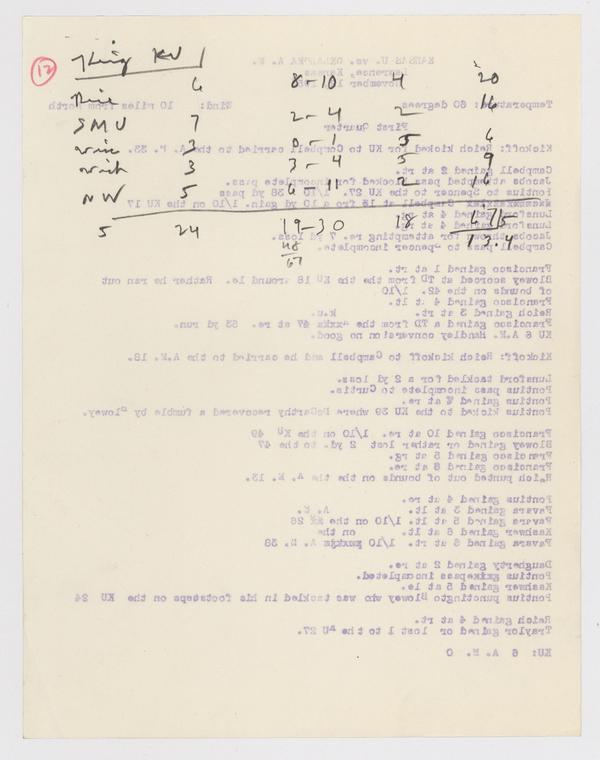 12
King KU
Rice 6 8-10 4 20
SMU 7 2-4 2 16
wis 3 0-1 5 6
wich 3 3-4 5 9
NW 5 6-11 2 16
5 24 19-30 18 67/5
48 13.4
67
KANSAS U. vs. OKLAHOMA A. M.
Lawrence, Kansas
November
Temperature: 60 degrees Wind: 10 miles from North
First Quarter
Kickoff: Reich kicked for KU to Campbell carried to the A. M. 33.
Campbell gained 2 at rt.
Jacobs attempted pass blocked for incomplete pass.
Pontius to Spencer to the KU 27. 1/10 38 yd pass
Campbell at 18 fro a 10 yd gain. 1/10 on the KU 17
Lunsford gained 4 at rg.
Lunsford gained 4 at rg.
Jacobs thrown for attempting re. 7 yd loss.
Campbell pass to Spencer incomplete.
Francisco gained 1 at rt.
Blowey scorced at TD from the the KU 18 around le. Rather he ran out
of bounds on the 42. 1/10
Francisco gained 4 at lt.
Reich gained 3 at rt. k.u.
Francisco gained a TD from the 47 at re. 53 yd run.
KU 6 A.M. Handley conversion no good.
Kickoff: Reich kickoff to Campbell and he carried to the A.M. 18.
Lunsford tackled for a 2 yd loss.
Pontius pass incomplete to Curtis.
Pontius gained 4 at re.
Pontius kicked to the KU 39 where McCarthy recovered a fumble by Blowey.
Francisco gained 10 at re. 1/10 on the KU 49
Blowey gained or rather lost 2 yd. to the 47
Francisco gained 5 at rg.
Francisco gained 8 at re.
Reich punted out of bounds on the the A. M. 13.
Pontius gained 4 at re.
Favara gained 3 at lt. A. M.
Favara gained 5 at lt. 1/10 on the 26
Kashwer gained 6 at lt. on the
Favara gained 6 at rt. 1/10 A. M. 38
Daugherty gained 2 at re.
Pontius pass incompleted.
Kashwer gained 5 at le.
Pontius punctingto Blowey who was tackled in his footsteps on the KU 24
Reich gained 4 at rt.
Traylor gained or lost 1 to the KU 27.
KU: 6 A. M. 0